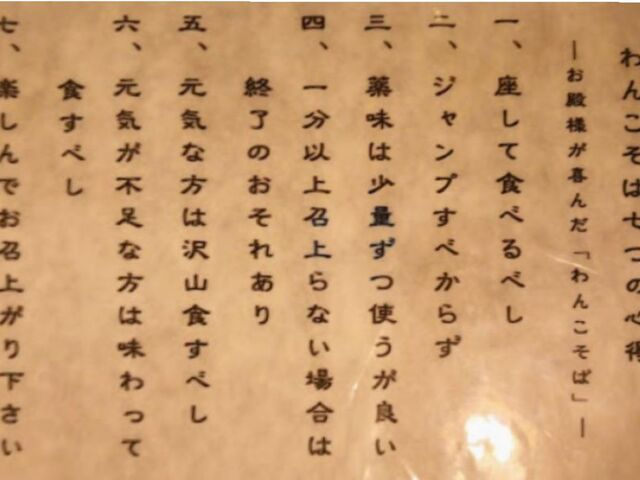 わんこそば七つの心得
―お殿様が喜んだ「わんこそば」―
一、座して食べるべし
二、ジャンプすべからず
三、薬味は少量ずつ使うが良い
四、一分以上召上らない場合は
終了のおそれあり
五、元気な方は沢山食すべし
六、元気が不足な方は味わって
食すべし
七、楽しんでお召上がり下さい